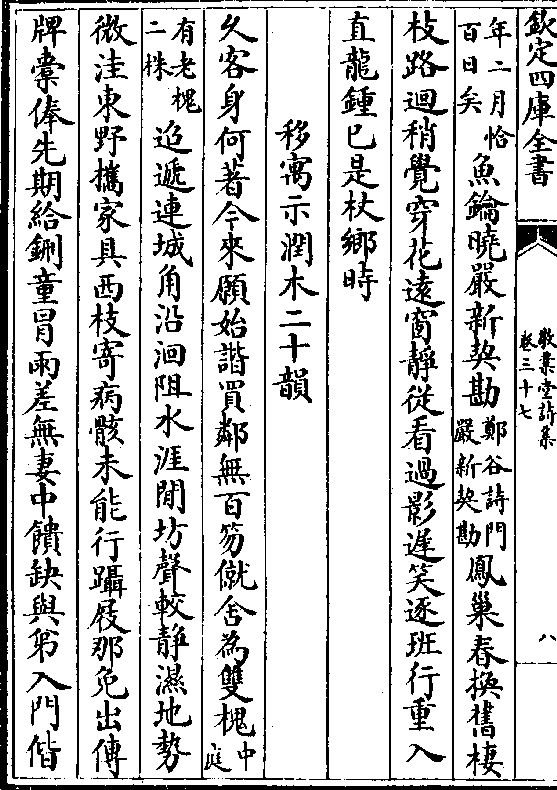 欽定四庫全書
敬業堂詩集
卷三十七
八
年二月恰
百日矣
魚鑰曉嚴新契勘
鄭谷詩門
嚴新契勘
鳳巢春換舊棲
枝路迴稍覺穿花遠窗靜從看過影遲笑逐班行重入
直龍鍾已是杖鄉時
移寓示潤木二十韻
久客身何著今來願始諧買鄰無百笏僦舍為雙槐
中庭
有老槐
二株
迢遞連城角沿洄阻水涯閒坊聲較静濕地勢
微洼東野攜家具西枝寄病骸未能行躡屐那免出傳
牌橐俸先期給鉶童冒雨差無妻中饋缺與弟入門偕